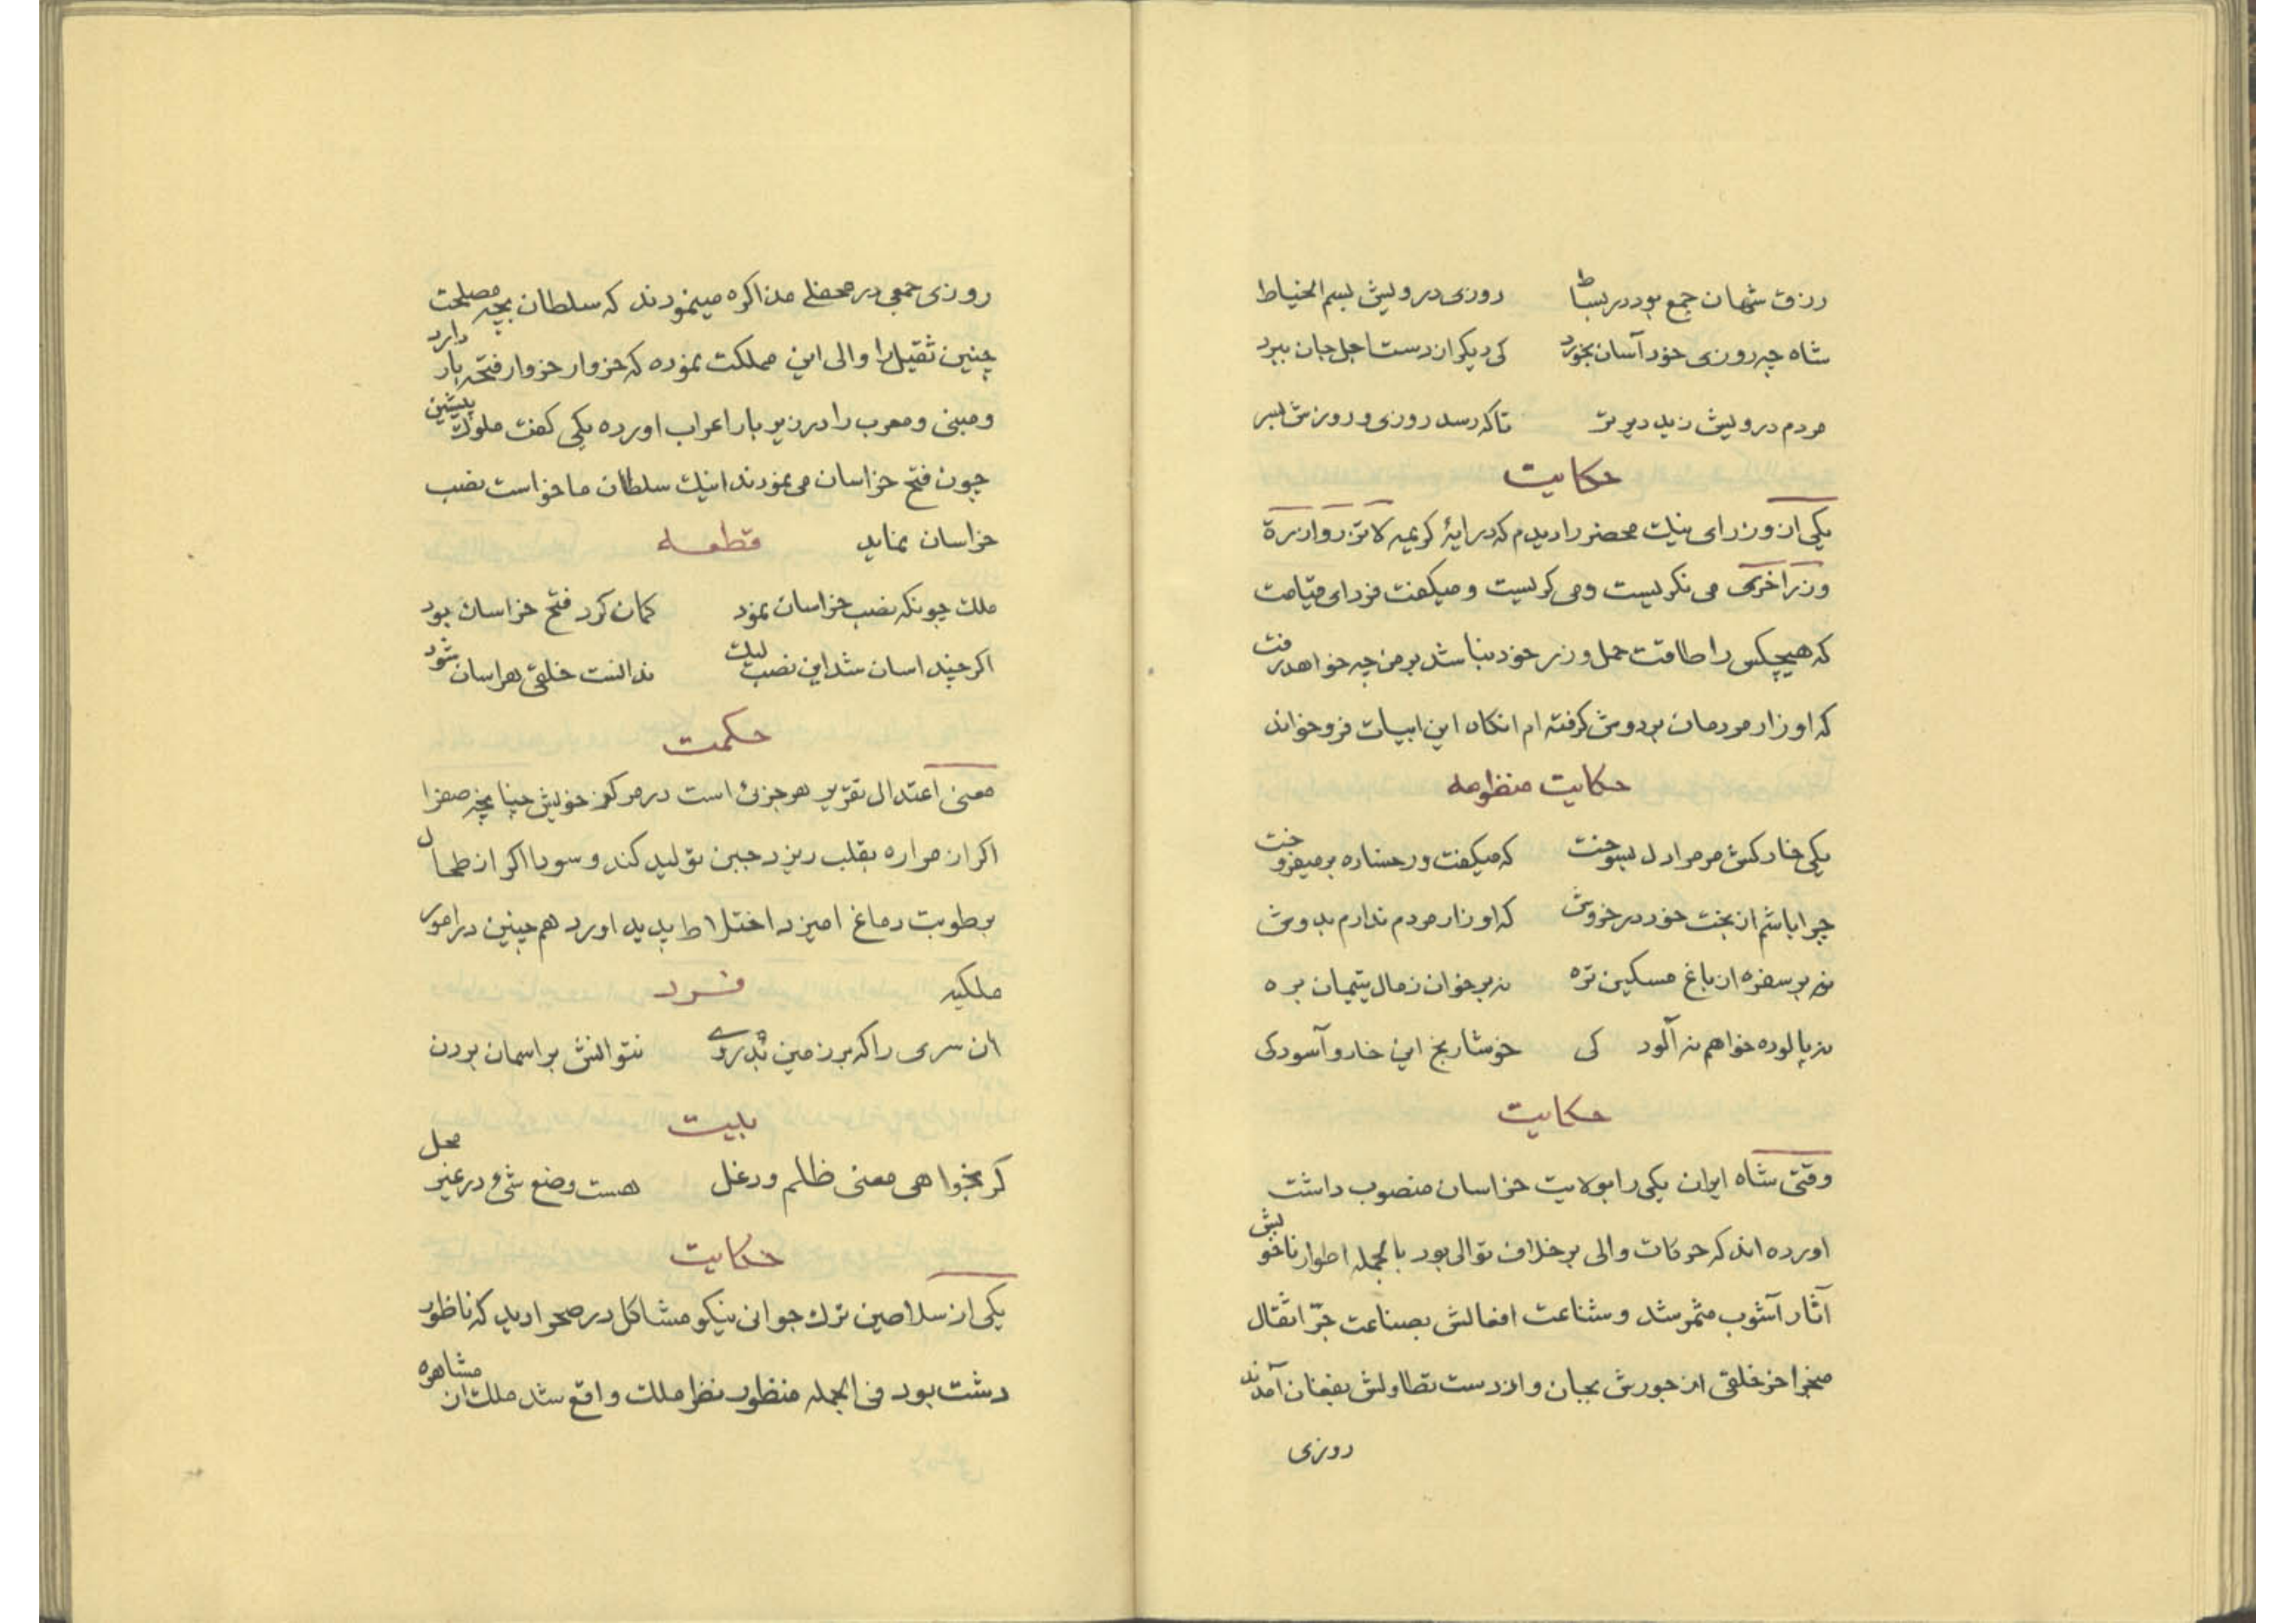 رزق شهان جمع بود در بساط روزی درویش بسم الخیاط
شاه چه روزی خود آسان بخورد کی دیکر از دست اجل جان ببرد
مردم درویش زید دیر تر تا که رسد روزی و روزش بسر
حکایت
یکی از وزرای نیك محضر را دیدم که در ایهٔ کریمه لا تزر وازرة
وزر اخری می نکریست و می کریست و میکفت فردای قیامت
که هیچکس را طاقت حمل وزر خود نباشد بر من چه خواهد رفت
که اوزار مردمان بر دوش کرفته ام انکاه این ابیات فرو خواند
حکایت منظومه
یکی خار کش مر مرا دل بسوخت که میکفت و رخساره بر میفروخت
چرا باشم از بخت خود در خروش که اوزار مردم ندارم بدوش
نه بر سفره از باغ مسکین تره نه بر خوان ز مال یتیمان بره
نه پالوده خواهم نه آلود کی خوشا رنج این خار و آسودکی
حکایت
وقتی شاه ایران یکی را بولایت خراسان منصوب داشت
اورده اند که حرکات والی بر خلاف توالی بود بالجمله اطوار ناخویش
آثار آشوب مثمر شد و شناعت افعالش بصناعت جرّ اثقال
منجر اخر خلقی از جورش بجان و از دست تطاولش بفغان آمدند
روزی
روزی جمعی در محفلی مذاکره مینمودند که سلطان بچه مصلحت دارد
چنین ثقیل را والی این مملکت نموده که خروار خروار فتحه بار
و مبنی و معرب را در زیر بار اعراب اورده یکی کفت ملوك پیشین
چون فتح خراسان می نمودند اینك سلطان ما خواست نصب
خراسان نماید قطعه
ملك چونکه نصب خراسان نمود کمان کرد فتح خراسان بود
اکر چند اسان شد این نصب لیك ندانست خلقی هراسان شود
حکمت
معنی اعتدال تقریر هر جزئی است در مرکز خویش چنانچه صفرا
اکر از مراره بقلب ریزد جبن تولید کند و سودا اکر از طحال
برطوبت دماغ امیزد اختلاط پدید اورد هم چنین در امور
ملکیه فرد
ان سری را که بر زمین بدروی نتوانش بر اسمان بردن
بیت
کر بخواهی معنی ظلم و دغل هست وضع شیء در غیر محل
حکایت
یکی از سلاصین ترك جوانی نیکو مشاکل در صحرا دید که ناظور
دشت بود فی الجمله منظور نظر ملك واقع شد ملك ان مشاهره